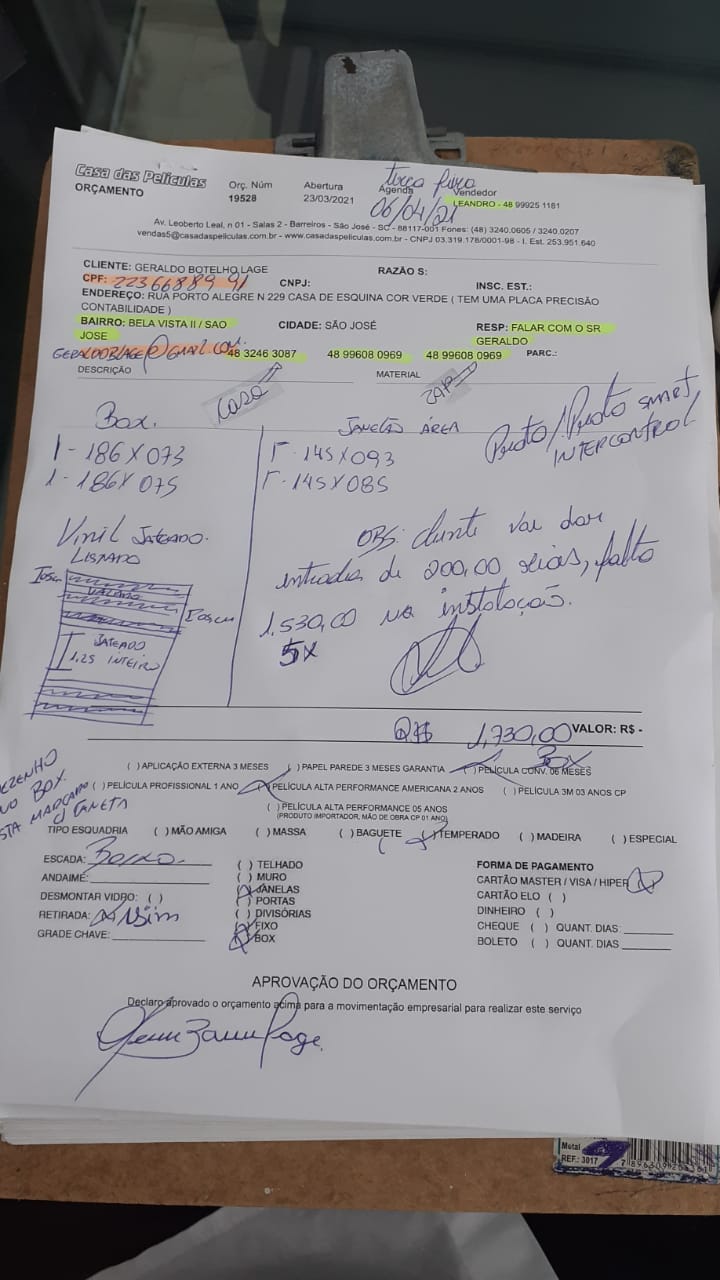 Casa das Películas
ORÇAMENTO
Orç. Núm
19528
Abertura
23/03/2021
terça feira
Agenda
06/04/21
Vendedor
LEANDRO - 48 99925 1181
Av. Leoberto Leal, n 01 - Salas 2 - Barreiros - São José - SC - 88117-001 Fones: (48) 3240.0605 / 3240.0207
vendas5@casadaspeliculas.com.br - www.casadaspeliculas.com.br - CNPJ 03.319.178/0001-98 - I. Est. 253.951.640
CLIENTE: GERALDO BOTELHO LAGE
RAZÃO S:
CPF: 22366889 91
CNPJ:
INSC. EST.:
ENDEREÇO: RUA PORTO ALEGRE N 229 CASA DE ESQUINA COR VERDE ( TEM UMA PLACA PRECISÃO
CONTABILIDADE )
BAIRRO: BELA VISTA II / SAO
JOSE
CIDADE: SÃO JOSÉ
RESP: FALAR COM O SR
GERALDO
GERALDOBLAGE@GMAIL.COM.
48 3246 3087
48 99608 0969
48 99608 0969
PARC.:
DESCRIÇÃO
MATERIAL
CASA
ZAP
Box.
1 - 186 X 073
1 - 186 X 075
JANELÃO ÁREA
1 - 145 X 093
1 - 145 X 085
Preto/Preto smart
INTERCONTROL
Vinil JATEADO.
LISTRADO
JATEADO
1.25 INTEIRO
OBS: cliente vai dar
entrada de 200,00 reias, falta
1.530,00 na instalação.
5X
R$ 1.730,00
VALOR: R$ -
BOX
( ) APLICAÇÃO EXTERNA 3 MESES
( ) PAPEL PAREDE 3 MESES GARANTIA
( ) PELÍCULA CONV. 06 MESES
DEZENHO
NO BOX.
STA MARCADO
C/ CANETA
( ) PELÍCULA PROFISSIONAL 1 ANO
( ) PELÍCULA ALTA PERFORMANCE AMERICANA 2 ANOS
( ) PELÍCULA 3M 03 ANOS CP
( ) PELÍCULA ALTA PERFORMANCE 05 ANOS
(PRODUTO IMPORTADOR, MÃO DE OBRA CP 01 ANO)
TIPO ESQUADRIA
( ) MÃO AMIGA
( ) MASSA
( ) BAGUETE
( ) TEMPERADO
( ) MADEIRA
( ) ESPECIAL
ESCADA: Baixo
ANDAIME:
DESMONTAR VIDRO: ( )
RETIRADA: (X) Sim
GRADE CHAVE:
( ) TELHADO
( ) MURO
(X) JANELAS
( ) PORTAS
( ) DIVISÓRIAS
(X) FIXO
(X) BOX
FORMA DE PAGAMENTO
CARTÃO MASTER / VISA / HIPER (X)
CARTÃO ELO ( )
DINHEIRO ( )
CHEQUE ( ) QUANT. DIAS:
BOLETO ( ) QUANT. DIAS
APROVAÇÃO DO ORÇAMENTO
Declaro aprovado o orçamento acima para a movimentação empresarial para realizar este serviço
Metal
REF.: 3017